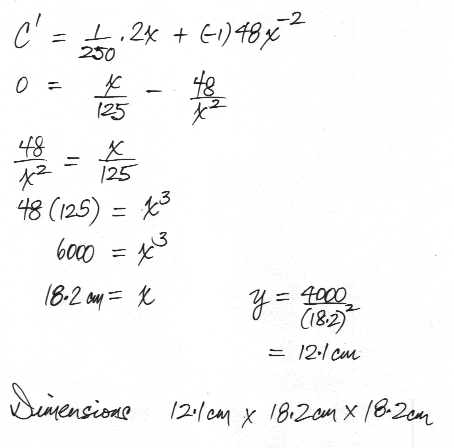 C' = 1/250 · 2x + (-1)48x^-2
0 = x/125 - 48/x^2
48/x^2 = x/125
48(125) = x^3
6000 = x^3
18.2 cm = x
y = 4000/(18.2)^2
= 12.1 cm
Dimensions 12.1 cm x 18.2 cm x 18.2 cm